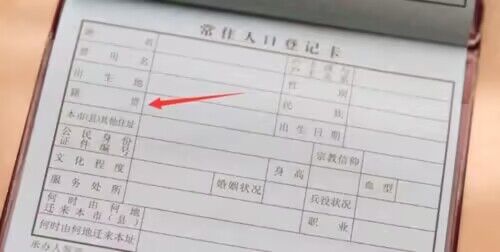 常住人口登记卡
姓名
曾用名 性别
出生地 民族
籍贯 出生日期
本市(县)其他住址 宗教信仰
公民身份证件编号 身高 血型
文化程度 婚姻状况 兵役状况
服务处所 职业
何时由何地迁来本市(县)
何时由何地迁来本址
承办人签章